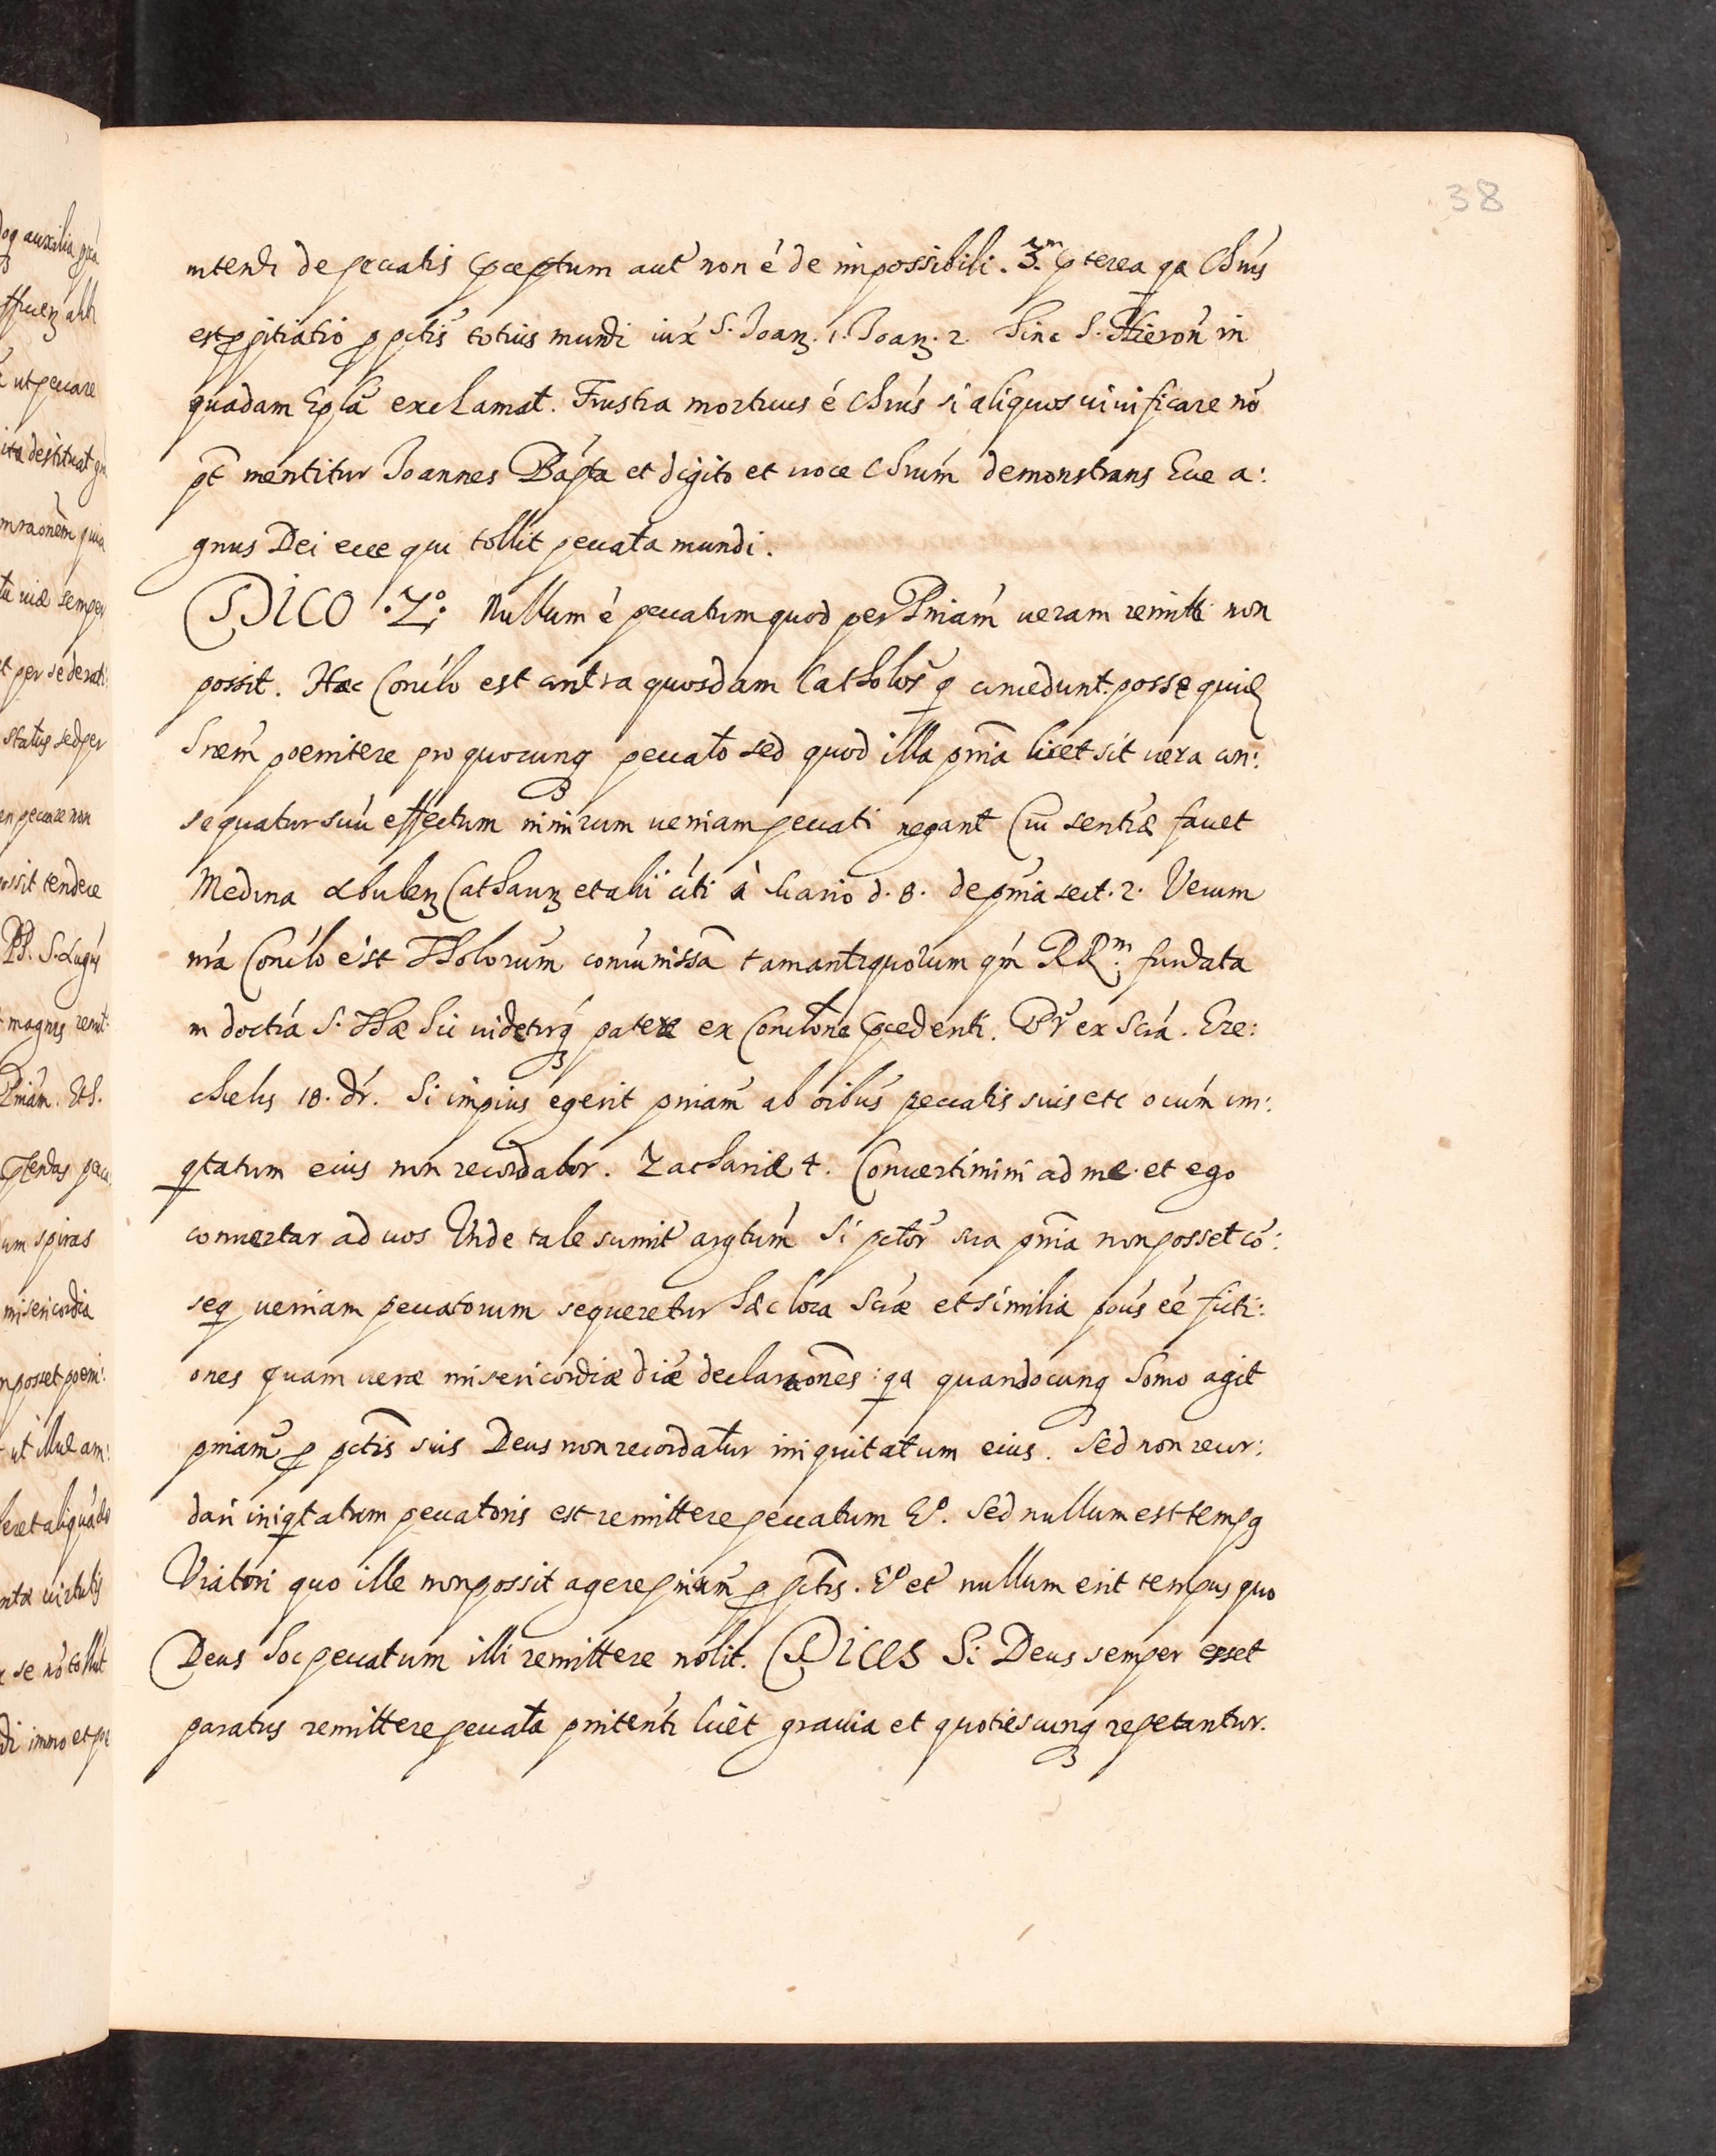 38
intendi de peccatis p̃ceptum aut̃ non é de impossibili. 3.m p̃terea qa Chrús
est ppitiatio p pctis totius mundi iux̃ S. Joanẽ. 1. Joanẽ. 2. hinc S. Hieron in
quadam Eplã exclamat. Frustra mortuus é Chrús si aliquos uiuificare nõ
pt̃ mentitur Joannes Bápta et digito et uoce Chrúm demonstrans Ecce a:
gnus Dei ecce qui tollit peccata mundi.
DICO .2.º Nullum é peccatum quod per Pniám ueram remitti non
possit. Hæc Concĺo est contra quosdam Catholos̃ q concedunt posse quid
hnẽm poenitere pro quocunq peccato sed quod illa pnĩa licet sit uera con:
sequatur suú effectum nimirum ueniam peccati negant Cui sentiæ fauet
Medina Abulenz Catharinz et alii citi à Cario d. 8. de pnia sect. 2. Verum
nrá Concĺo e'st Tholorum comunissa tam antiquorum qm̃ RRm. fundata
in doctiá S. Thæ hic uideturq patere ex Conclone p̃cedenti. Pr̃ ex Scrá. Eze:
chielis 18. dr̃. Si impius egerit pniam̃ ab oibús peccatis suis etc oium̃ ini:
qtatum eius non recordabor. Zachariæ 4. Conuertimini ad me et ego
conuertar ad uos Unde tale sumit̃ argtúm Si pctor̃ sua pnĩa non posset cõ:
seq ueniam peccatorum sequeretur hæc loca Scræ et similia poús eé ficti:
ones quam ueræ misericordiæ diæ declaraões: qa quandocunq homo agit
pniam̃ p pctis suis Deus non recordatur iniquitatum eius. Sed non recor:
dari iniqtatum peccatoris est remittere peccatum Eº. Sed nullum est tempg
Viatori quo ille non possit agere pniam̃ p pctis. Eº et̃ nullum erit tempus quo
Deus hoc peccatum illi remittere nolit. DICES Si Deus semper esset
paratus remittere peccata pnitenti licet grauia et quotiescunq repetantur.